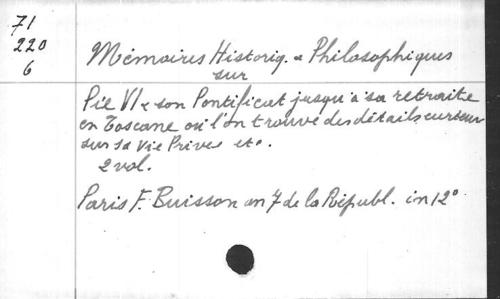 71
220
6
Mémoires Historiq. & Philosophiques
sur
Pie VI & son Pontificat jusqu'à sa retraite
en Toscane où l'on trouve des détails curieux
sur sa Vie Privée etc.
2 vol.
Paris F. Buisson an 7 de la Républ. in 12°